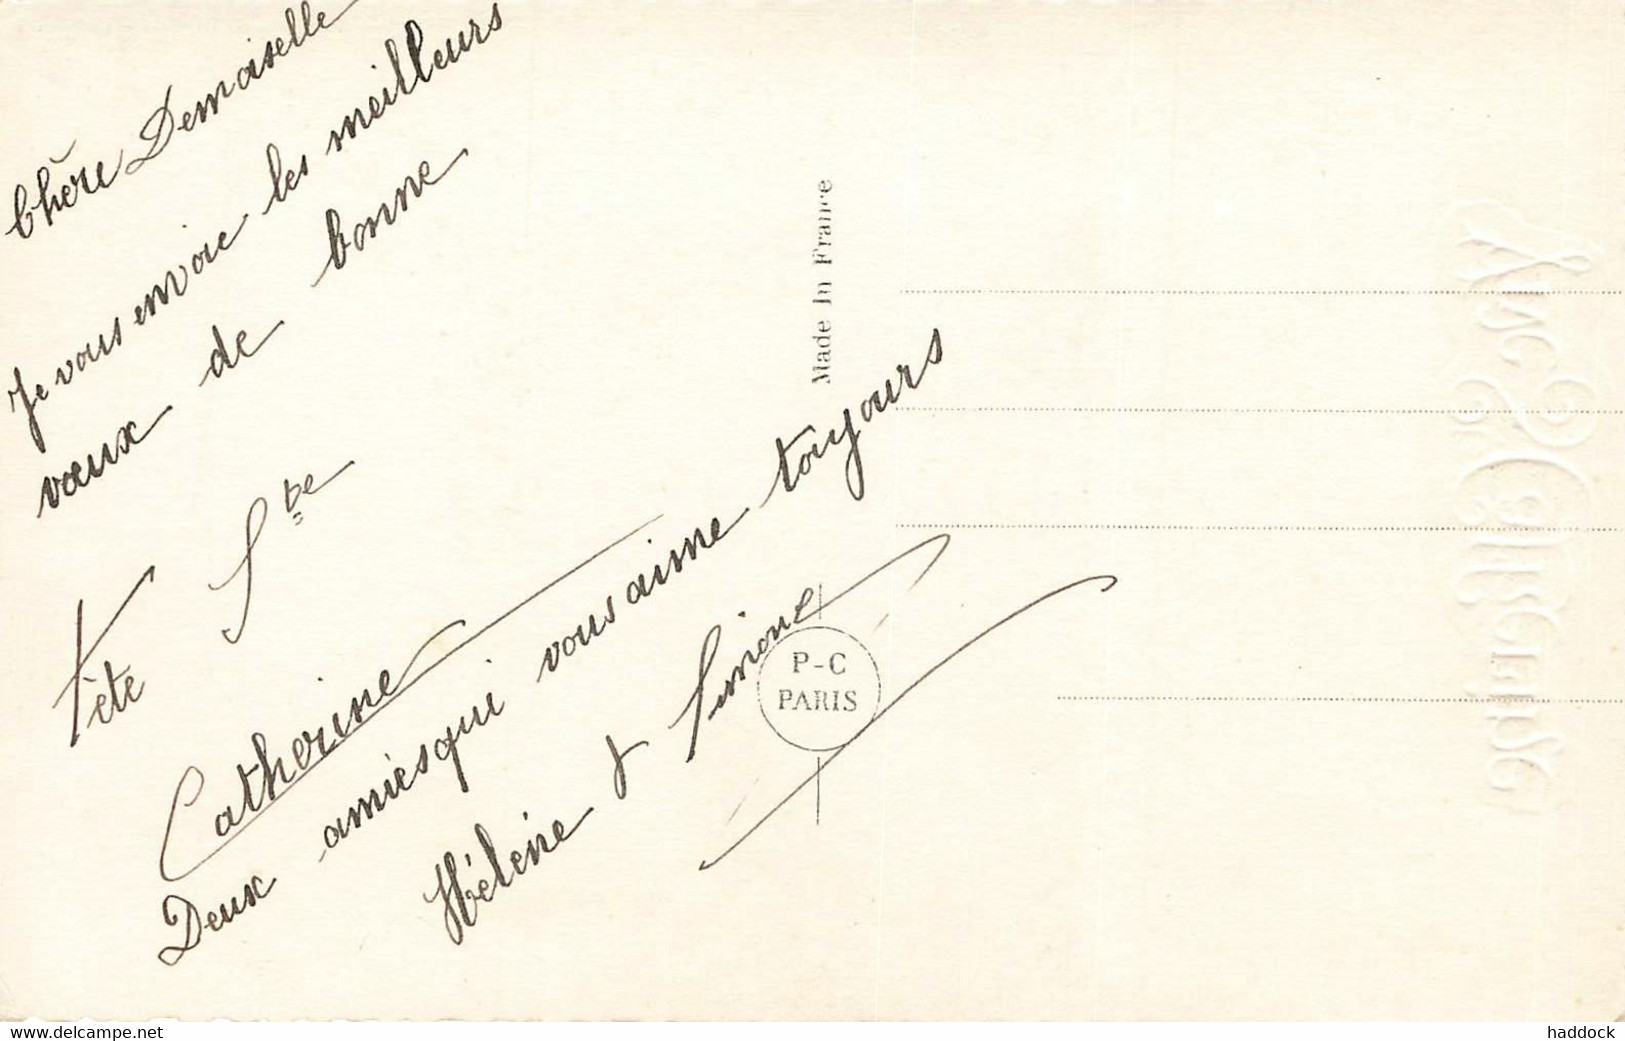 Chère Demoiselle
Je vous envoie les meilleurs
vœux de bonne
Fête Ste
Catherine
Deux amies qui vous aime toujours
Hélène & Simone
Made In France
P-C
PARIS
Vive Ste CATHERINE
www.delcampe.net
haddock